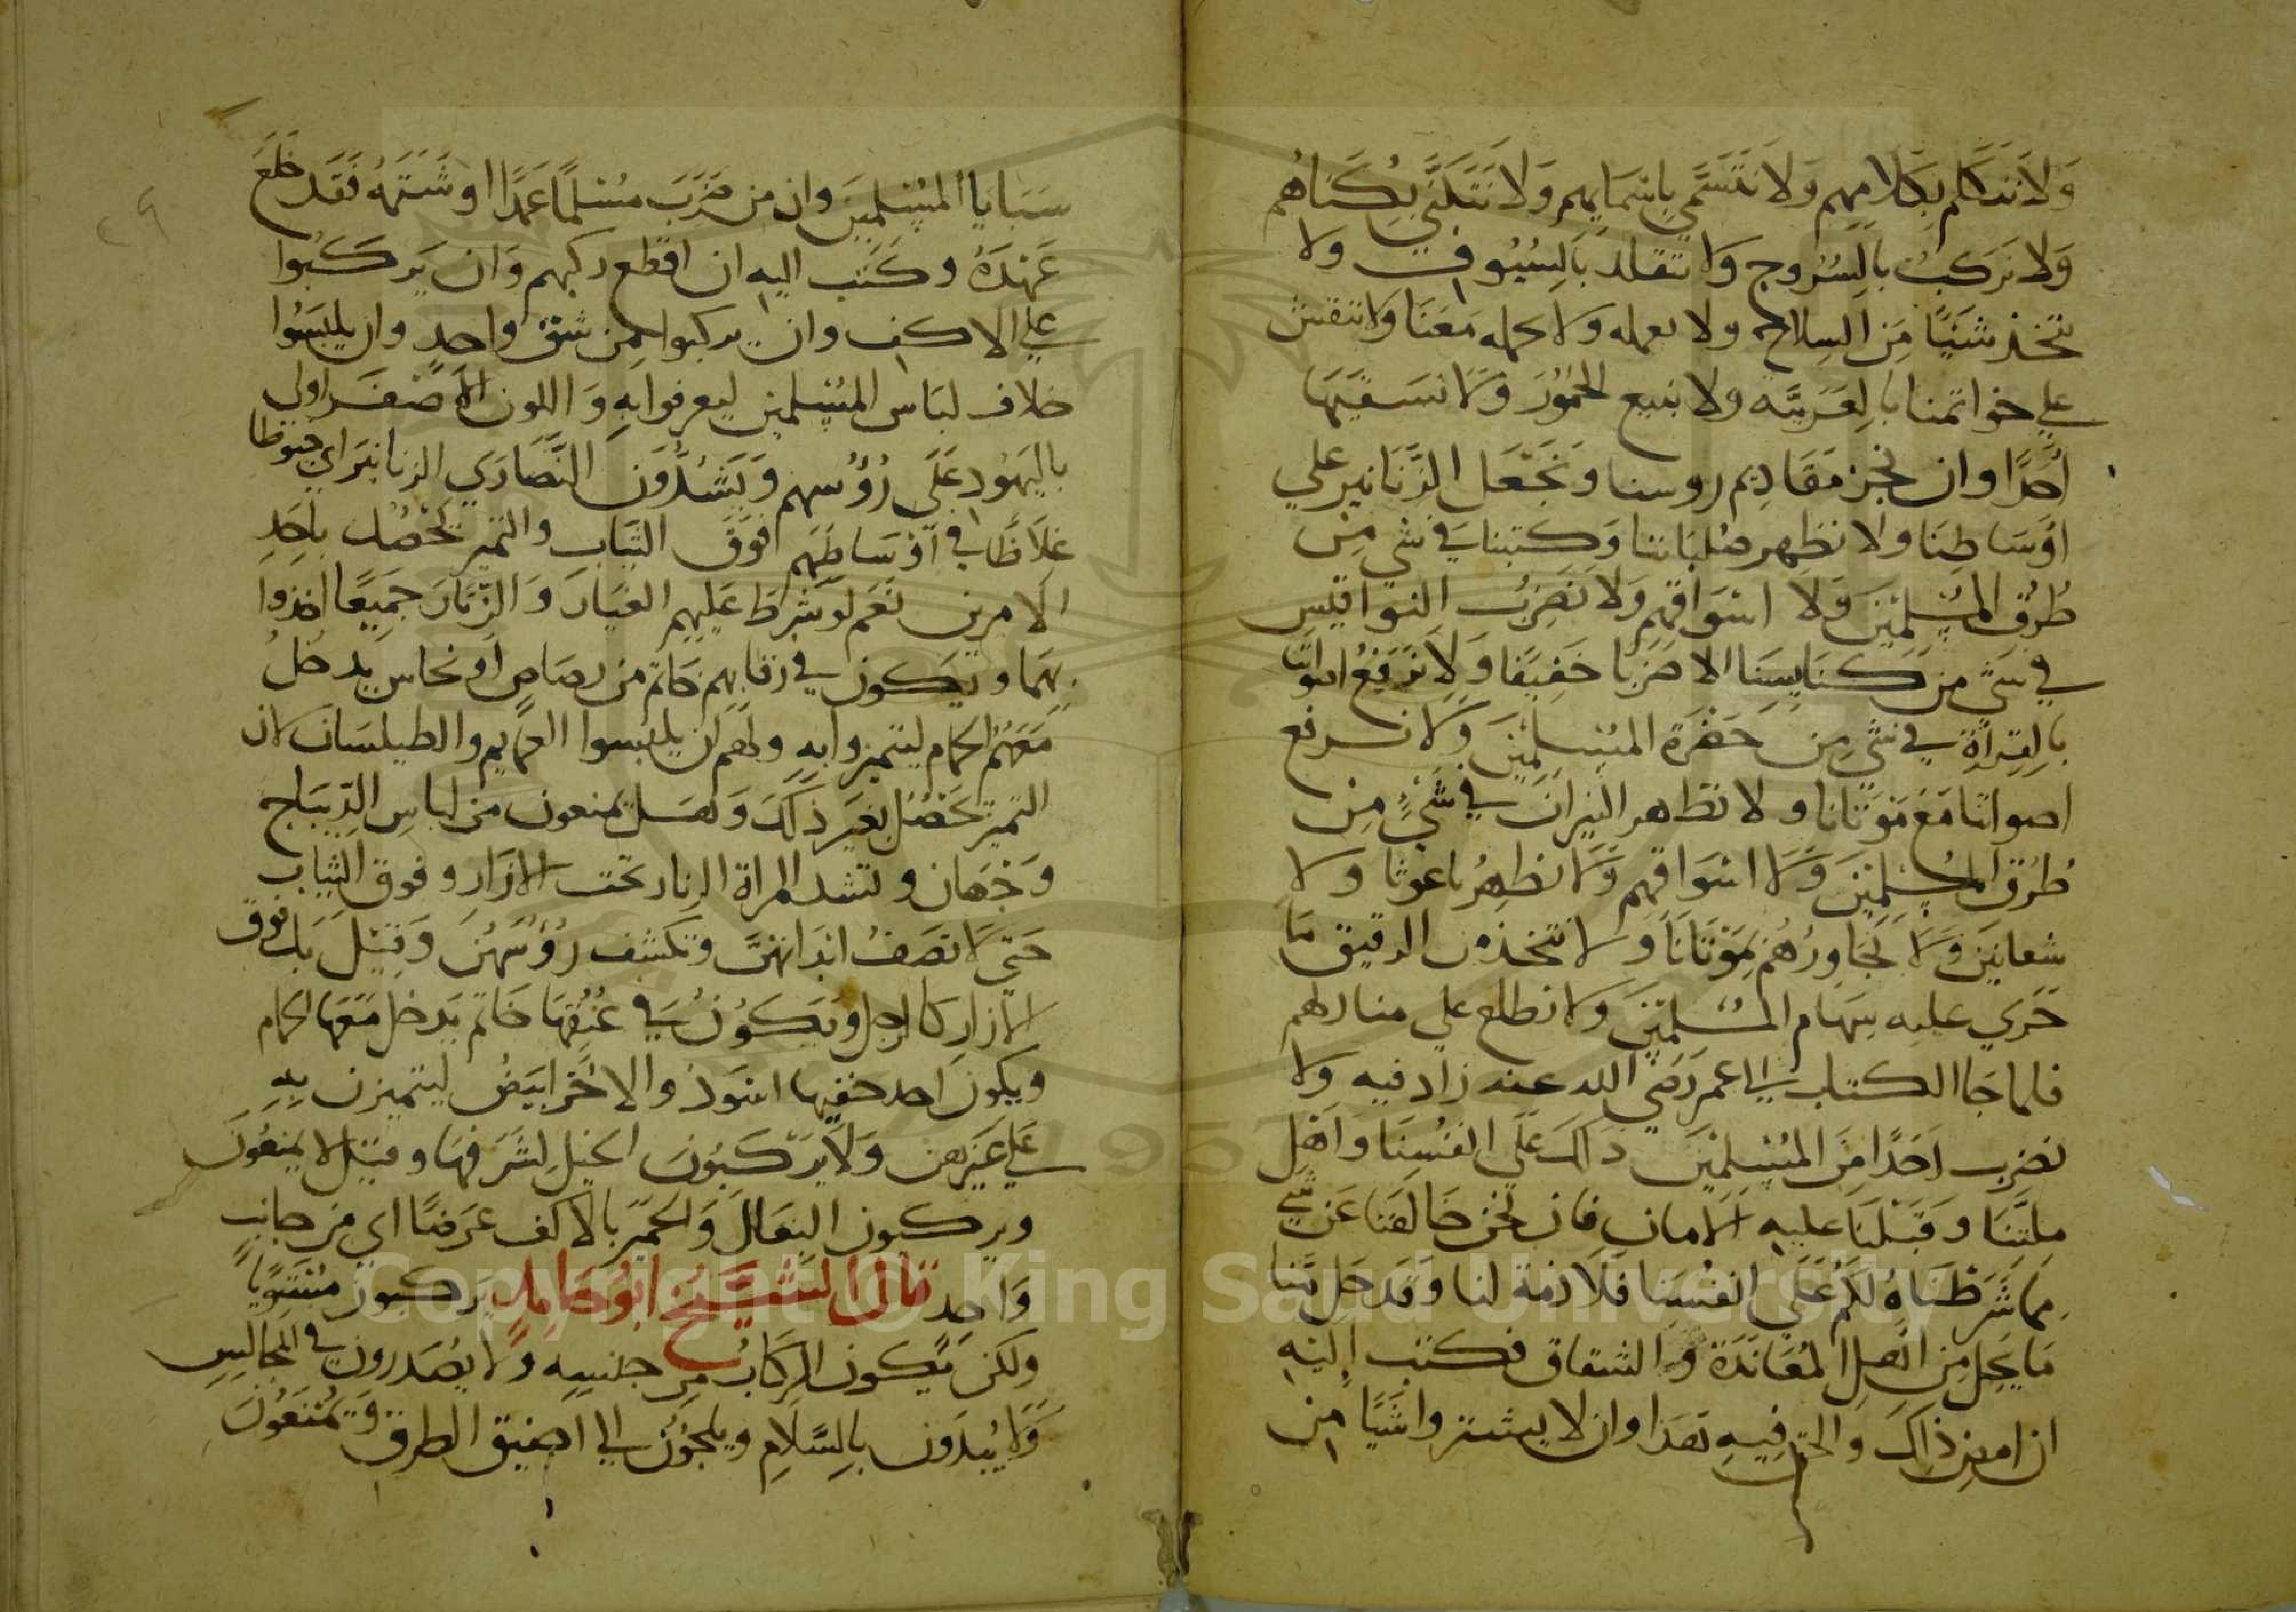 ولا نتكلم بكلامهم ولا نتسمي باسمايهم ولا نتكني بكناهم
ولا نركب بالسروج ولا نتقلد بالسيوف ولا
نتخذ شيئا من السلاح ولا نعمله ولا نحمله معنا ولا ننقش
علي خواتمنا بالعربية ولا نبيع الخمور ولا نسقيها
احدا وان نجز مقاديم روسنا ونجعل الزنانير علي
اوساطنا ولا نظهر صلباننا وكتبنا في شي من
طرق المسلمين ولا اسواقهم ولا نضرب النواقيس
في شي من كنايسنا الا ضربا خفيفا ولا نرفع اصواتنا
بالقراة في شي من حضرة المسلمين ولا نرفع
اصواتنا مع موتانا ولا نظهر النيران في شي من
طرق المسلمين ولا اسواقهم ولا نظهر باعوثا ولا
شعانين ولا نجاورهم بموتانا ولا نتخذ من الرقيق ما
جري عليه سهام المسلمين ولا نطلع علي منازلهم
فلما جا الكتاب الي عمر رضي الله عنه زاد فيه ولا
نضرب احدا من المسلمين ذلك علي انفسنا واهل
ملتنا وقبلنا عليه الامان فان نحن خالفنا عن شي
مما شرطناه لكم علي انفسنا فلا ذمة لنا وقد حل بنا
ما يحل من اهل المعاندة والشقاق فكتب اليه
ان امض ذلك والحق فيه هذا وان لا يشتروا شيا من
سبايا المسلمين وان من ضرب مسلما عمدا او شتمه فقد خلع
عهده وكتب اليه ان اقطع ركبهم وان يركبوا
علي الاكف وان يركبوا من شق واحد وان يلبسوا
خلاف لباس المسلمين ليعرفوا به واللون الاصفر اولي
باليهود علي رؤسهم ويشدون النصاري الزنانير اي خيوطا
غلاظا في اوساطهم فوق الثياب والتميز يحصل باحد
الامرين نعم لو شرط عليهم الغيار والزنار جميعا اخذوا
بهما ويكون في رقابهم خاتم من رصاص او نحاس يدخل
معهم الحمام ليتميزوا به ولهم ان يلبسوا العمايم والطيلسان لان
التميز يحصل بغير ذلك وهل يمنعون من لباس الديباج
وجهان وتشد المراة الزنار تحت الازار وفوق الثياب
حتي لا تصف ابدانهن وتكشف رؤسهن وقيل بل فوق
الازار كالرجل ويكون في عنقها خاتم يدخل معها الحمام
ويكون احد خفيها اسود والاخر ابيض ليتميزن به
علي غيرهن ولا يركبون الخيل لشرفها وقيل لا يمنعون
ويركبون البغال والحمير بالاكف عرضا اي من جانب
واحد قال الشيخ ابو حامد يركبون مستويا
ولكن يكون الركاب من جنسه ولا يصدرون في المجالس
ولا يبدون بالسلام ويلجؤن الي اضيق الطرق ويمنعون
Copyright © King Saud University
1957